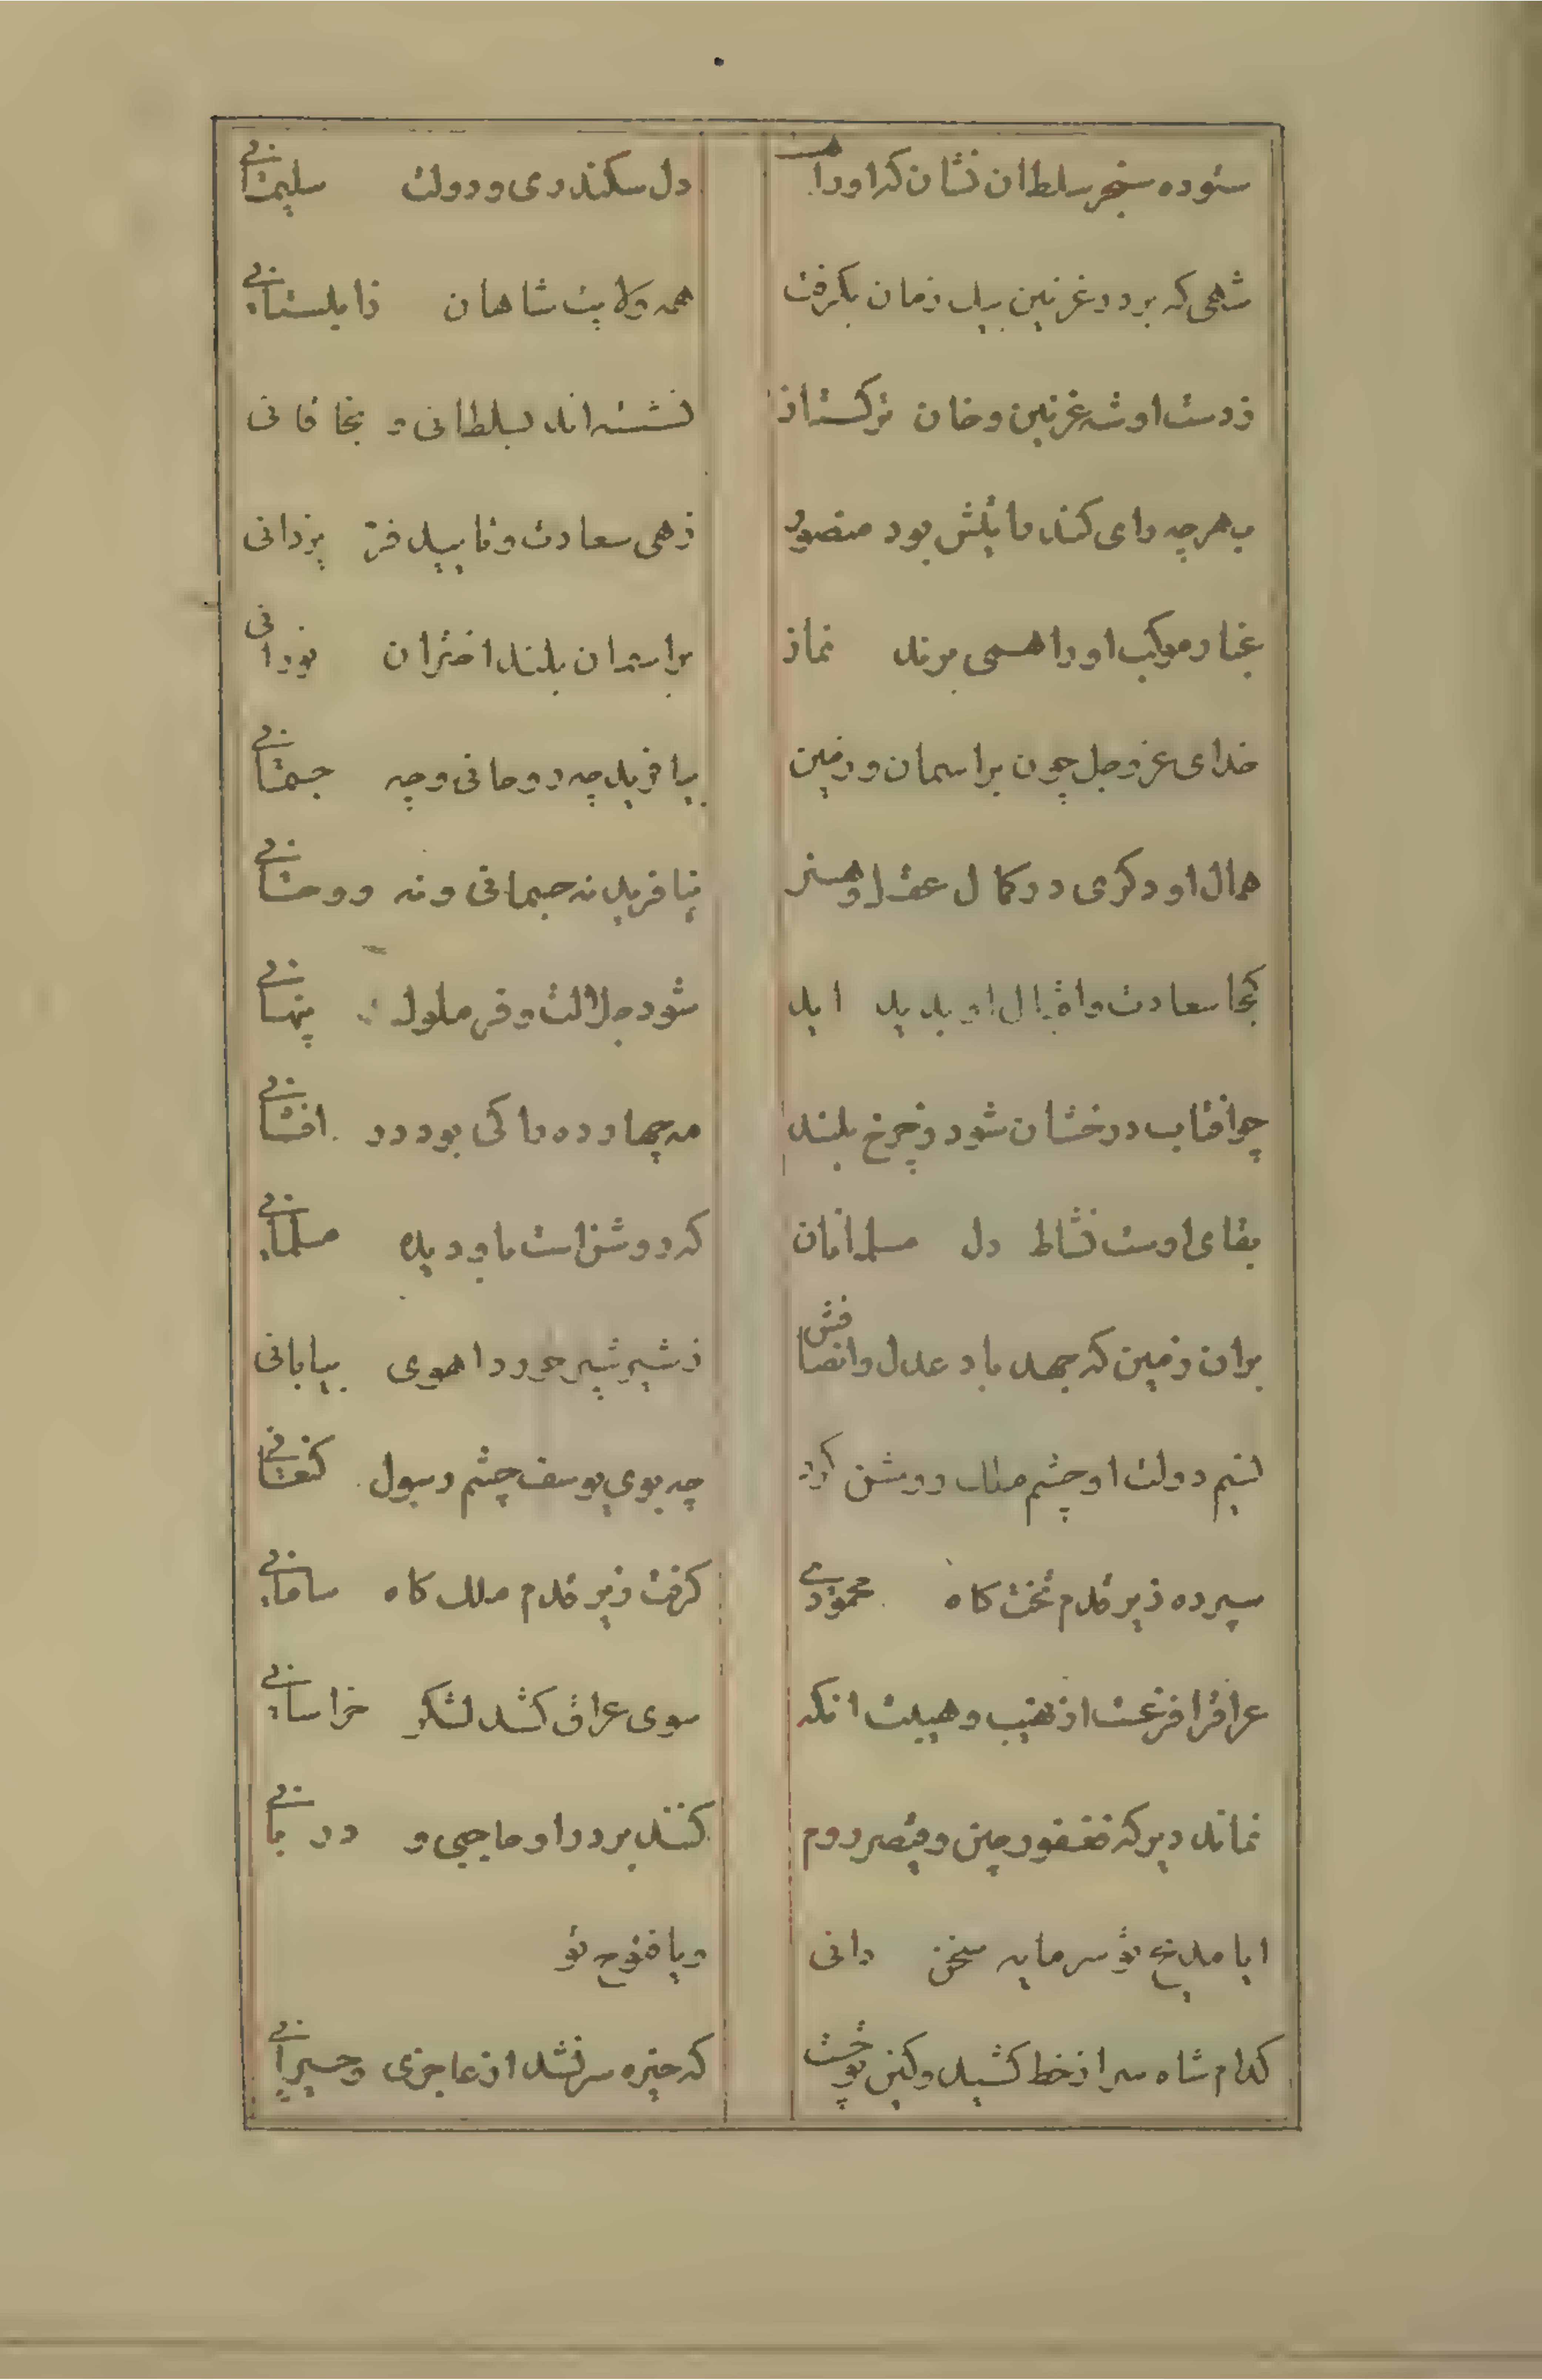 ستوده سنجر سلطان نشان که او را هست دل سکندری و دولت سلیمانی
شهی که بر در غزنین بیک زمان بگرفت همه ولایت شاهان زابلستانی
ز دست او شه غزنین و خان ترکستان نشسته اند بسلطانی و بخاقانی
بهرچه رای کند رایتش بود منصور زهی سعادت و تایید فر یزدانی
غبار موکب او را همی برند نماز بر اسمان بلند اختران نورانی
خدای عز و جل چون بر اسمان و زمین بیافرید چه روحانی و چه جسمانی
همال او دکری در کمال عقل و هنر نیافرید نه جسمانی و نه روحانی
کجا سعادت و اقبال او پدید اید شود جلالت و فر ملوک پنهانی
چو افتاب درخشان شود ز چرخ بلند مه چهارده را کی بود در افشانی
بقای اوست نشاط دل مسلمانان که روشن است باو دیده مسلمانی
بران زمین که جهد باد عدل و انصافش ز شیر شیر خورد اهوی بیابانی
نسیم دولت او چشم ملک روشن کرد چه بوی یوسف چشم رسول کنعانی
سپرده زیر قدم تختگاه محمودی گرفت زیر قدم ملک گاه سامانی
عراق را فزعست از نهیب و هیبت انکه سوی عراق کشد لشکر خراسانی
نماند دیر که فغفور چین و قیصر روم کنند بر در او حاجبی و دربانی
ایا مدیح تو سرمایه سخن دانی و یا فتوح تو
کدام شاه سر از خط کشید و کین تو جست که خیره سر نشد از عاجزی و حیرانی